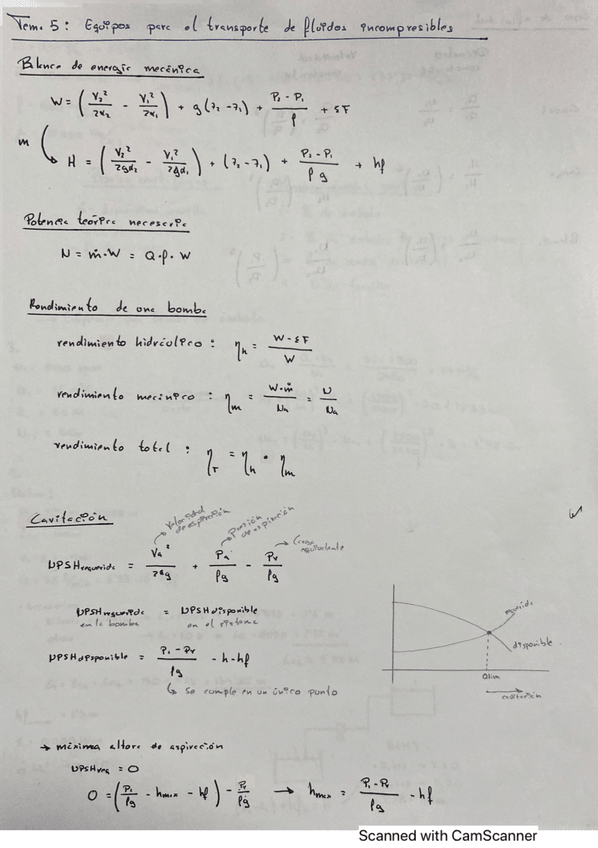 Tema 5: Equipos para el transporte de fluidos incompresibles
Balance de energía mecánica
W = (V₂²/2α₂ - V₁²/2α₁) + g(z₂-z₁) + (P₂-P₁)/ρ + ΣF
m
H = (V₂²/2gα₂ - V₁²/2gα₁) + (z₂-z₁) + (P₂-P₁)/ρg + hf
Potencia teórica necesaria
N = ṁ·W = Q·ρ·W
Rendimiento de una bomba
rendimiento hidráulico: ηh = (W-ΣF)/W
rendimiento mecánico: ηm = W·ṁ/Na = N/Na
rendimiento total: ηT = ηh · ηm
Cavitación
Velocidad de aspiración
Presión de aspiración
NPSHrequerida = Va²/2αg + Pa/ρg - Pv/ρg
NPSHrequerida = NPSHdisponible
en la bomba en el sistema
NPSHdisponible = (P₁-Pv)/ρg - h - hf
↳ se cumple en un único punto
requerida
disponible
Qlim
cavitación
→ máxima altura de aspiración
NPSHreq = 0
0 = (P₁/ρg - hmax - hf) - Pv/ρg → hmax = (P₁-Pv)/ρg - hf
Scanned with CamScanner